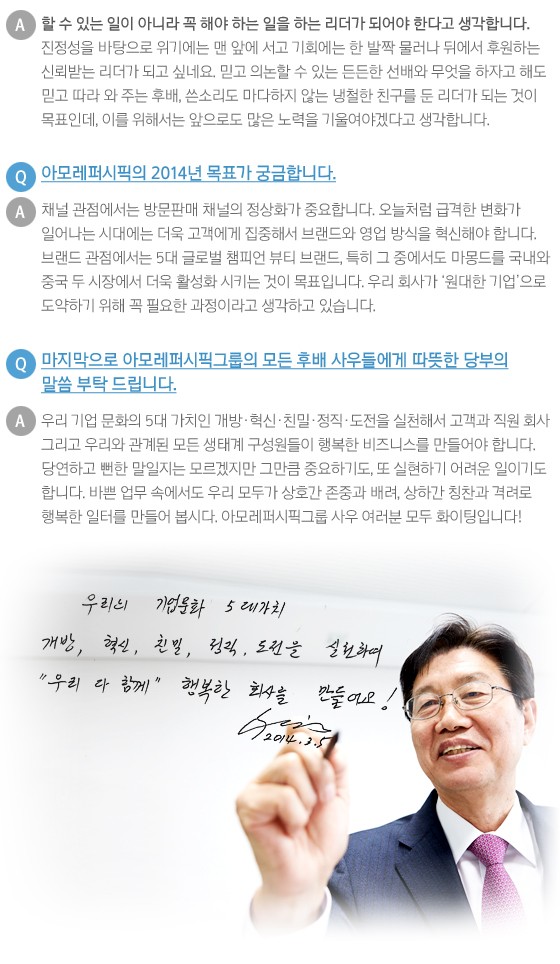 A 할 수 있는 일이 아니라 꼭 해야 하는 일을 하는 리더가 되어야 한다고 생각합니다.
진정성을 바탕으로 위기에는 맨 앞에 서고 기회에는 한 발짝 물러나 뒤에서 후원하는
신뢰받는 리더가 되고 싶네요. 믿고 의논할 수 있는 든든한 선배와 무엇을 하자고 해도
믿고 따라 와 주는 후배, 쓴소리도 마다하지 않는 냉철한 친구를 둔 리더가 되는 것이
목표인데, 이를 위해서는 앞으로도 많은 노력을 기울여야겠다고 생각합니다.
Q 아모레퍼시픽의 2014년 목표가 궁금합니다.
A 채널 관점에서는 방문판매 채널의 정상화가 중요합니다. 오늘처럼 급격한 변화가
일어나는 시대에는 더욱 고객에게 집중해서 브랜드와 영업 방식을 혁신해야 합니다.
브랜드 관점에서는 5대 글로벌 챔피언 뷰티 브랜드, 특히 그 중에서도 마몽드를 국내와
중국 두 시장에서 더욱 활성화 시키는 것이 목표입니다. 우리 회사가 ‘원대한 기업’으로
도약하기 위해 꼭 필요한 과정이라고 생각하고 있습니다.
Q 마지막으로 아모레퍼시픽그룹의 모든 후배 사우들에게 따뜻한 당부의
말씀 부탁 드립니다.
A 우리 기업 문화의 5대 가치인 개방·혁신·친밀·정직·도전을 실천해서 고객과 직원 회사
그리고 우리와 관계된 모든 생태계 구성원들이 행복한 비즈니스를 만들어야 합니다.
당연하고 뻔한 말일지는 모르겠지만 그만큼 중요하기도, 또 실현하기 어려운 일이기도
합니다. 바쁜 업무 속에서도 우리 모두가 상호간 존중과 배려, 상하간 칭찬과 격려로
행복한 일터를 만들어 봅시다. 아모레퍼시픽그룹 사우 여러분 모두 화이팅입니다!
우리의 기업문화 5대가치
개방, 혁신, 친밀, 정직, 도전을 실천하여
"우리 다 함께" 행복한 회사를 만들어요!
2014.3.5